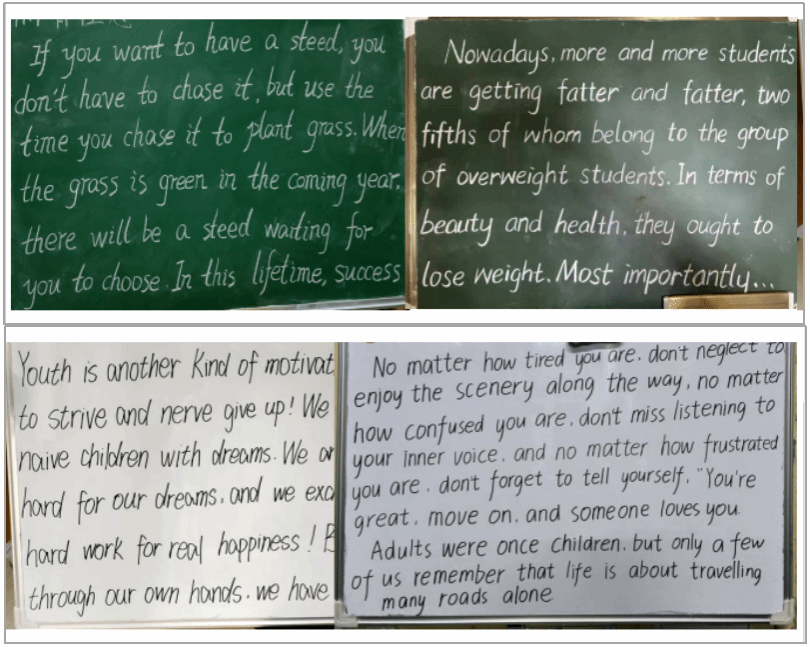 If you want to have a steed, you
don't have to chase it, but use the
time you chase it to plant grass. When
the grass is green in the coming year,
there will be a steed waiting for
you to choose. In this lifetime, success
Nowadays, more and more students
are getting fatter and fatter, two
fifths of whom belong to the group
of overweight students. In terms of
beauty and health, they ought to
lose weight. Most importantly...
Youth is another Kind of motivat
to strive and nerve give up! We
naive children with dreams. We ar
hard for our dreams, and we exc
hard work for real happiness! B
through our own hands. we have
No matter how tired you are. don't neglect to
enjoy the scenery along the way, no matter
how confused you are. dont miss listening to
your inner voice. and no matter how frustrated
you are. dont forget to tell yourself. "You're
great. move on. and someone loves you.
Adults were once children. but only a few
of us remember that life is about travelling
many roads alone